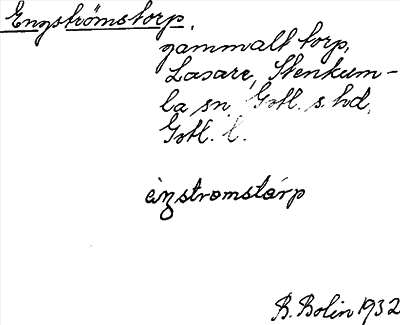 Engströmstorp.
gammalt torp,
Lasare, Stenkum-
la sn, Gotl. s. hd,
Gotl. l.
èŋstromstárp
B. Bolin 1932